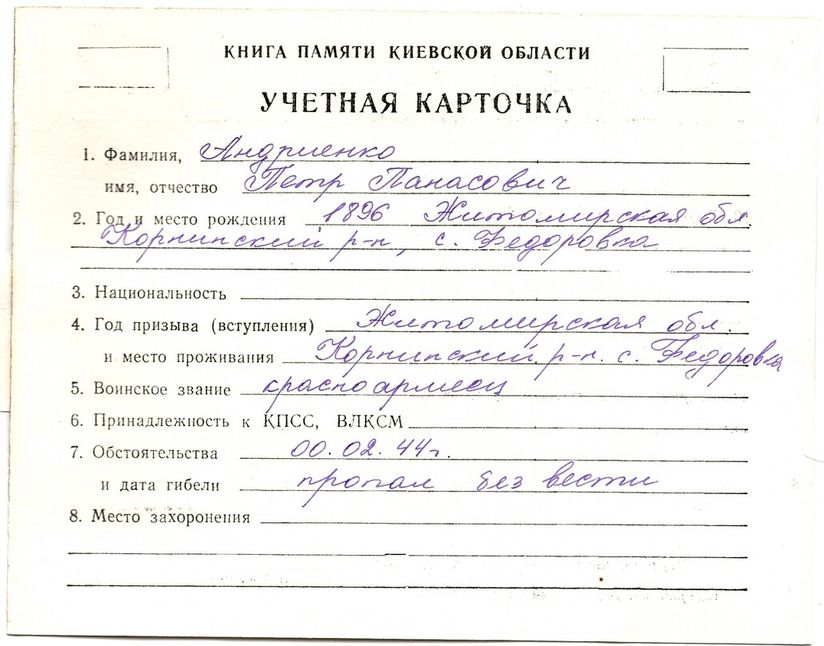 КНИГА ПАМЯТИ КИЕВСКОЙ ОБЛАСТИ
УЧЕТНАЯ КАРТОЧКА
1. Фамилия, Андриенко
имя, отчество Петр Панасович
2. Год и место рождения 1896 Житомирская обл.
Корнинский р-н, с. Федоровка
3. Национальность
4. Год призыва (вступления) Житомирская обл.
и место проживания Корнинский р-н. с. Федоровка
5. Воинское звание красноармеец
6. Принадлежность к КПСС, ВЛКСМ
7. Обстоятельства 00.02.44г.
и дата гибели пропал без вести
8. Место захоронения